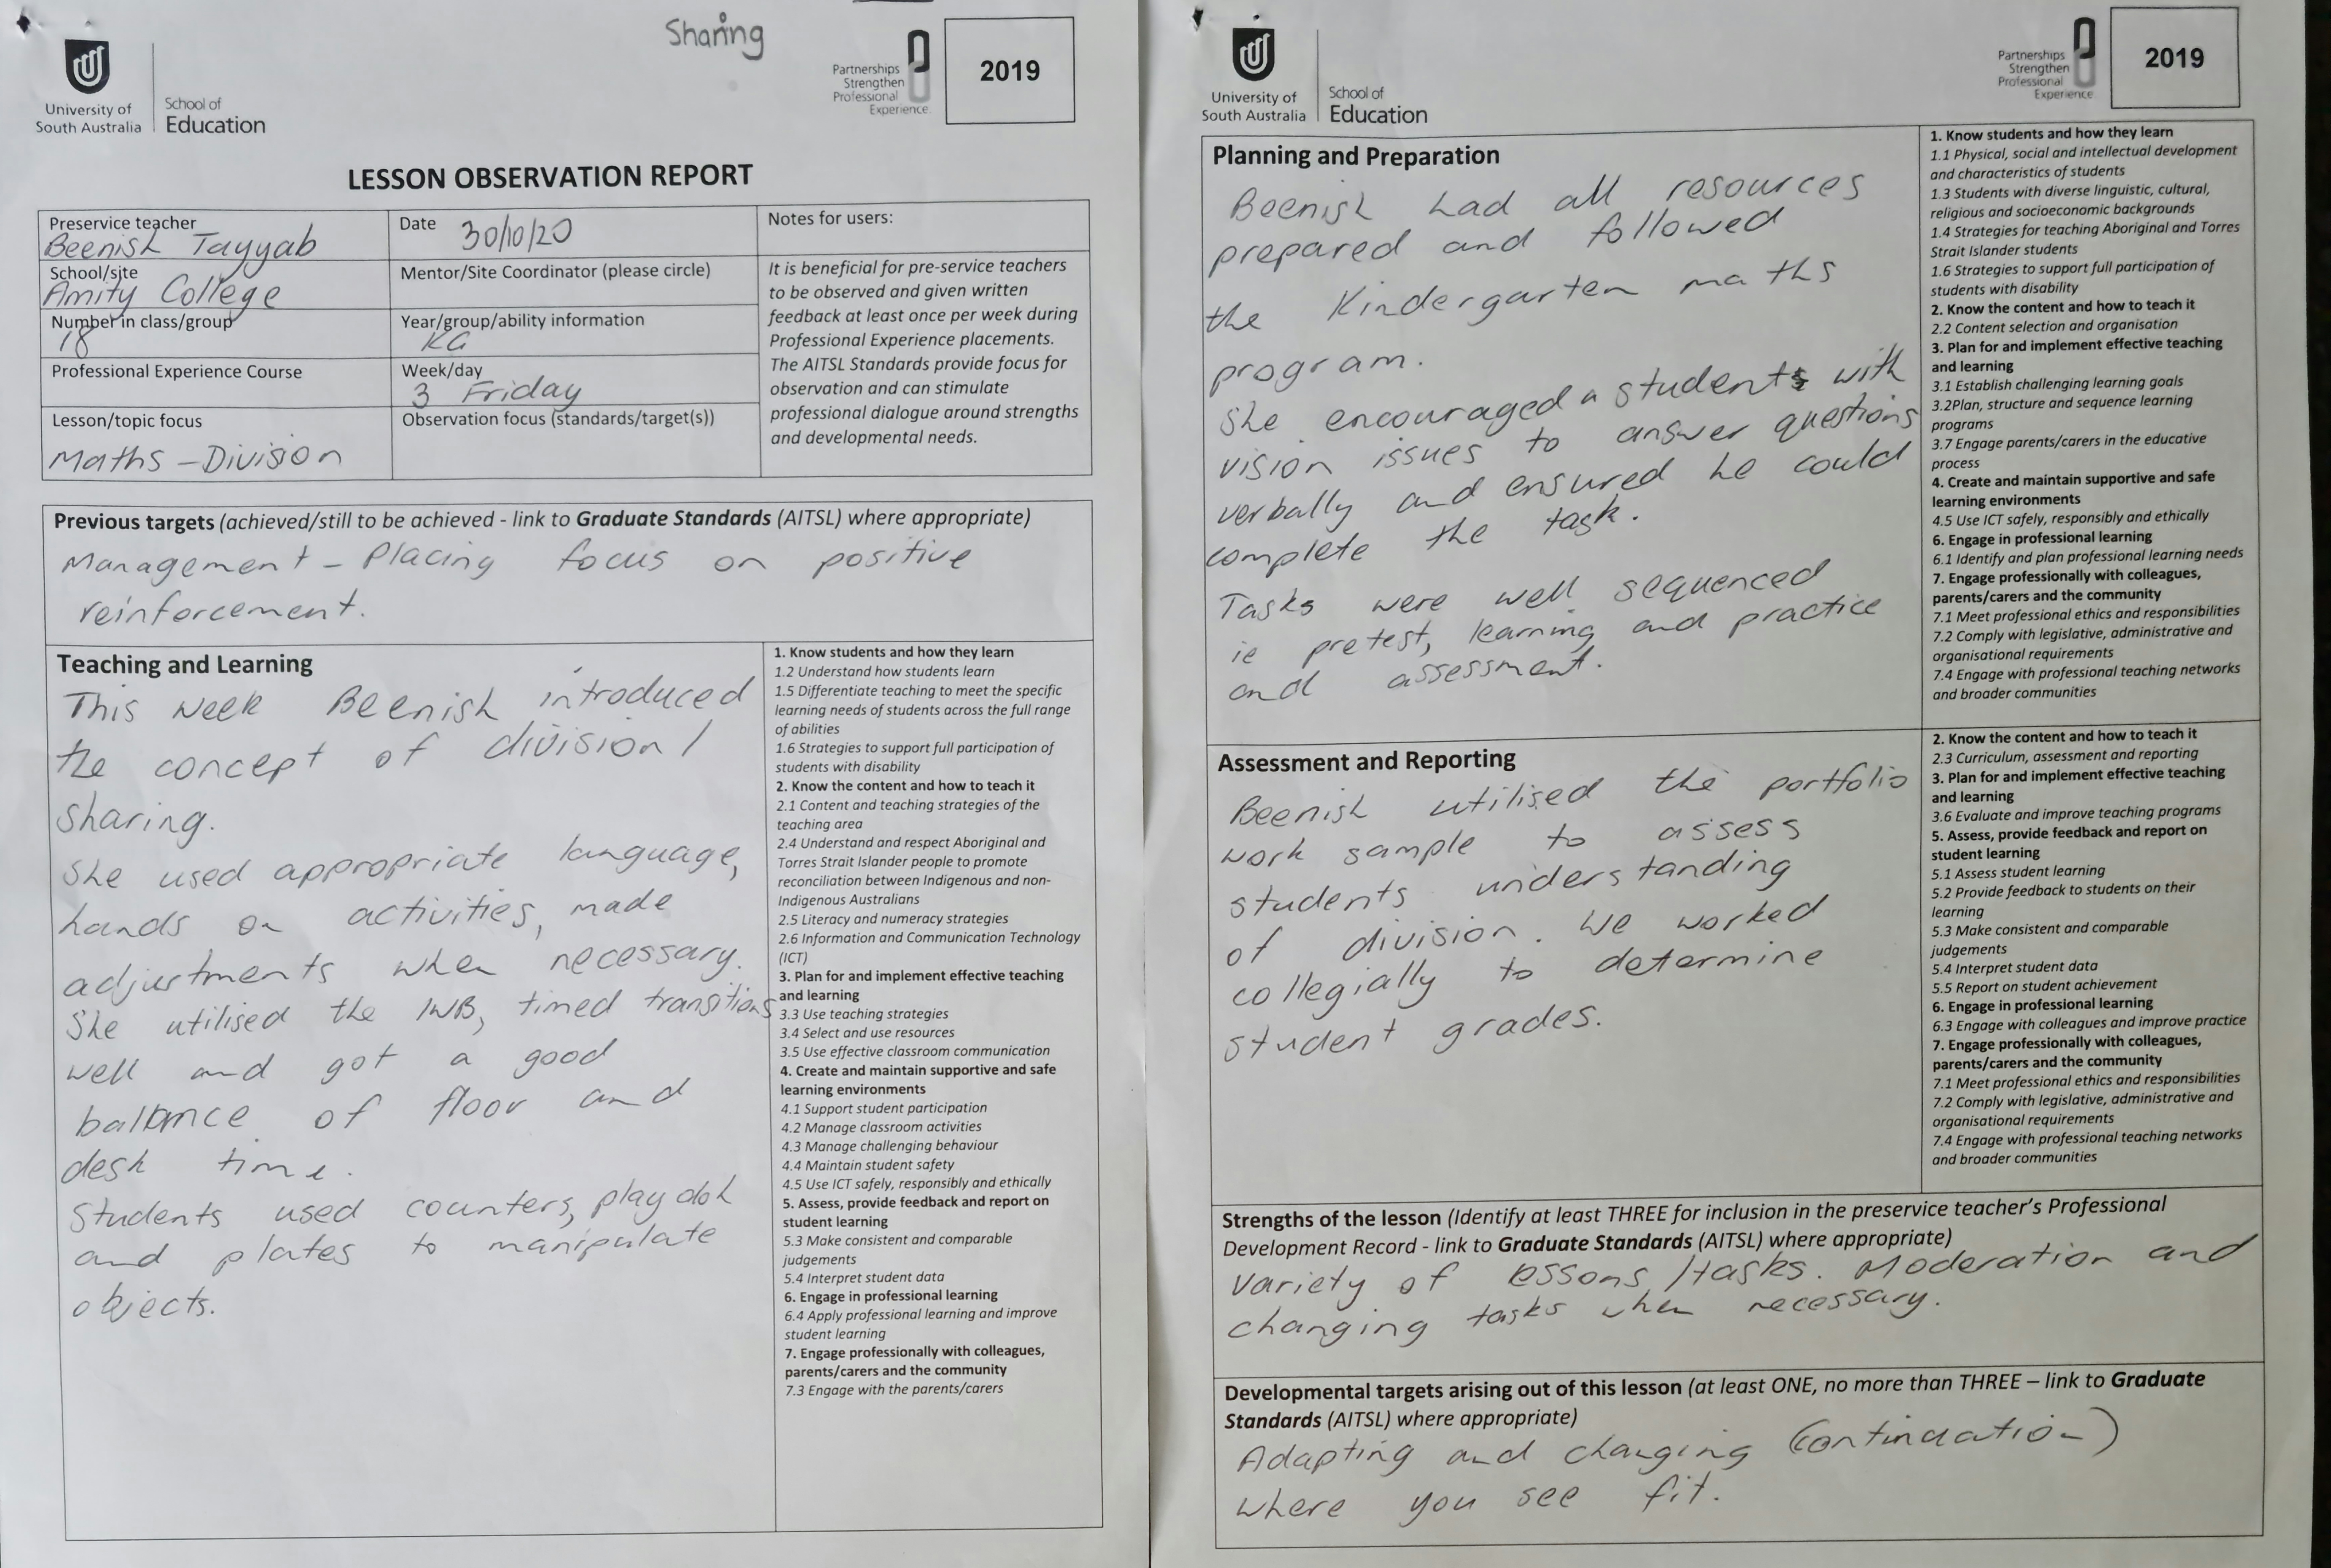 Sharing
University of
South Australia
School of
Education
Partnerships
Strengthen
Professional
Experience
2019
LESSON OBSERVATION REPORT
Preservice teacher
Beenish Tayyab
Date 30/10/20
Notes for users:
School/site
Amity College
Mentor/Site Coordinator (please circle)
Number in class/group
18
Year/group/ability information
KG
Professional Experience Course
Week/day
3 Friday
Lesson/topic focus
Maths - Division
Observation focus (standards/target(s))
It is beneficial for pre-service teachers
to be observed and given written
feedback at least once per week during
Professional Experience placements.
The AITSL Standards provide focus for
observation and can stimulate
professional dialogue around strengths
and developmental needs.
Previous targets (achieved/still to be achieved - link to Graduate Standards (AITSL) where appropriate)
Management - Placing focus on positive
reinforcement.
Teaching and Learning
This week Beenish introduced
the concept of division/
sharing.
She used appropriate language,
hands on activities, made
adjustments when necessary.
She utilised the IWB, timed transitions
well and got a good
balance of floor and
desk time.
Students used counters, play doh
and plates to manipulate
objects.
1. Know students and how they learn
1.2 Understand how students learn
1.5 Differentiate teaching to meet the specific
learning needs of students across the full range
of abilities
1.6 Strategies to support full participation of
students with disability
2. Know the content and how to teach it
2.1 Content and teaching strategies of the
teaching area
2.4 Understand and respect Aboriginal and
Torres Strait Islander people to promote
reconciliation between Indigenous and non-
Indigenous Australians
2.5 Literacy and numeracy strategies
2.6 Information and Communication Technology
(ICT)
3. Plan for and implement effective teaching
and learning
3.3 Use teaching strategies
3.4 Select and use resources
3.5 Use effective classroom communication
4. Create and maintain supportive and safe
learning environments
4.1 Support student participation
4.2 Manage classroom activities
4.3 Manage challenging behaviour
4.4 Maintain student safety
4.5 Use ICT safely, responsibly and ethically
5. Assess, provide feedback and report on
student learning
5.3 Make consistent and comparable
judgements
5.4 Interpret student data
6. Engage in professional learning
6.4 Apply professional learning and improve
student learning
7. Engage professionally with colleagues,
parents/carers and the community
7.3 Engage with the parents/carers
University of
South Australia
School of
Education
Partnerships
Strengthen
Professional
Experience
2019
Planning and Preparation
Beenish had all resources
prepared and followed
the Kindergarten maths
program.
She encouraged a students with
vision issues to answer questions
verbally and ensured he could
complete the task.
Tasks were well sequenced
ie pretest, learning and practice
and assessment.
1. Know students and how they learn
1.1 Physical, social and intellectual development
and characteristics of students
1.3 Students with diverse linguistic, cultural,
religious and socioeconomic backgrounds
1.4 Strategies for teaching Aboriginal and Torres
Strait Islander students
1.6 Strategies to support full participation of
students with disability
2. Know the content and how to teach it
2.2 Content selection and organisation
3. Plan for and implement effective teaching
and learning
3.1 Establish challenging learning goals
3.2Plan, structure and sequence learning
programs
3.7 Engage parents/carers in the educative
process
4. Create and maintain supportive and safe
learning environments
4.5 Use ICT safely, responsibly and ethically
6. Engage in professional learning
6.1 Identify and plan professional learning needs
7. Engage professionally with colleagues,
parents/carers and the community
7.1 Meet professional ethics and responsibilities
7.2 Comply with legislative, administrative and
organisational requirements
7.4 Engage with professional teaching networks
and broader communities
Assessment and Reporting
Beenish utilised the portfolio
work sample to assess
students understanding
of division. We worked
collegially to determine
student grades.
2. Know the content and how to teach it
2.3 Curriculum, assessment and reporting
3. Plan for and implement effective teaching
and learning
3.6 Evaluate and improve teaching programs
5. Assess, provide feedback and report on
student learning
5.1 Assess student learning
5.2 Provide feedback to students on their
learning
5.3 Make consistent and comparable
judgements
5.4 Interpret student data
5.5 Report on student achievement
6. Engage in professional learning
6.3 Engage with colleagues and improve practice
7. Engage professionally with colleagues,
parents/carers and the community
7.1 Meet professional ethics and responsibilities
7.2 Comply with legislative, administrative and
organisational requirements
7.4 Engage with professional teaching networks
and broader communities
Strengths of the lesson (Identify at least THREE for inclusion in the preservice teacher's Professional
Development Record - link to Graduate Standards (AITSL) where appropriate)
Variety of lessons/tasks. Moderation and
changing tasks when necessary.
Developmental targets arising out of this lesson (at least ONE, no more than THREE – link to Graduate
Standards (AITSL) where appropriate)
Adapting and changing (continuation)
where you see fit.